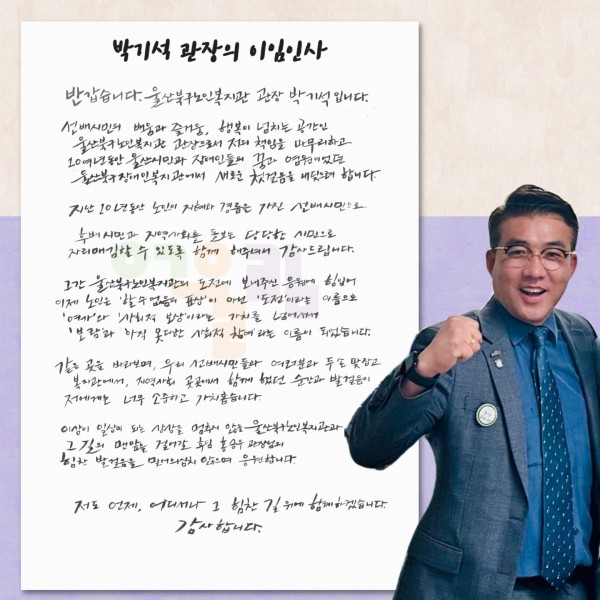 박기석 관장의 이임인사
반갑습니다. 울산북구노인복지관 관장 박기석입니다.
선배시민의 배움과 즐거움, 행복이 넘치는 공간인
울산북구노인복지관 관장으로서 저의 책임을 마무리하고
10여년동안 울산시민과 장애인들의 꿈과 염원이었던
울산북구장애인복지관에서 새로운 첫걸음을 내딛으려 합니다
지난 10년동안 노인의 지혜와 경륜을 가진 선배시민으로
후배시민과 지역사회를 돌보는 당당한 시민으로
자리매김할 수 있도록 함께 해주셔서 감사드립니다.
그간 울산북구노인복지관의 도전에 보내주신 응원에 힘입어
이제 노인은 '할 수 없음의 표상'이 아닌 '도전'이라는 이름으로
'여가'와 '사회적 보상'이라는 가치를 넘어서서
'보람'과 '아직 못다한 사회적 참여'라는 이름이 되었습니다.
같은 곳을 바라보며, 우리 선배시민들과 여러분과 두 손 맞잡고
복지관에서, 지역사회 곳곳에서 함께 했던 순간과 발걸음이
저에게는 너무 소중하고 가치롭습니다
이상이 일상이 되는 상상을 멈추지 않을 울산북구노인복지관과
그 길의 맨앞을 걸어갈 후임 관장님의
힘찬 발걸음을 믿어 의심치 않으며 응원합니다.
저도 언제, 어디서나 그 힘찬 길 위에 함께하겠습니다.
감사합니다.